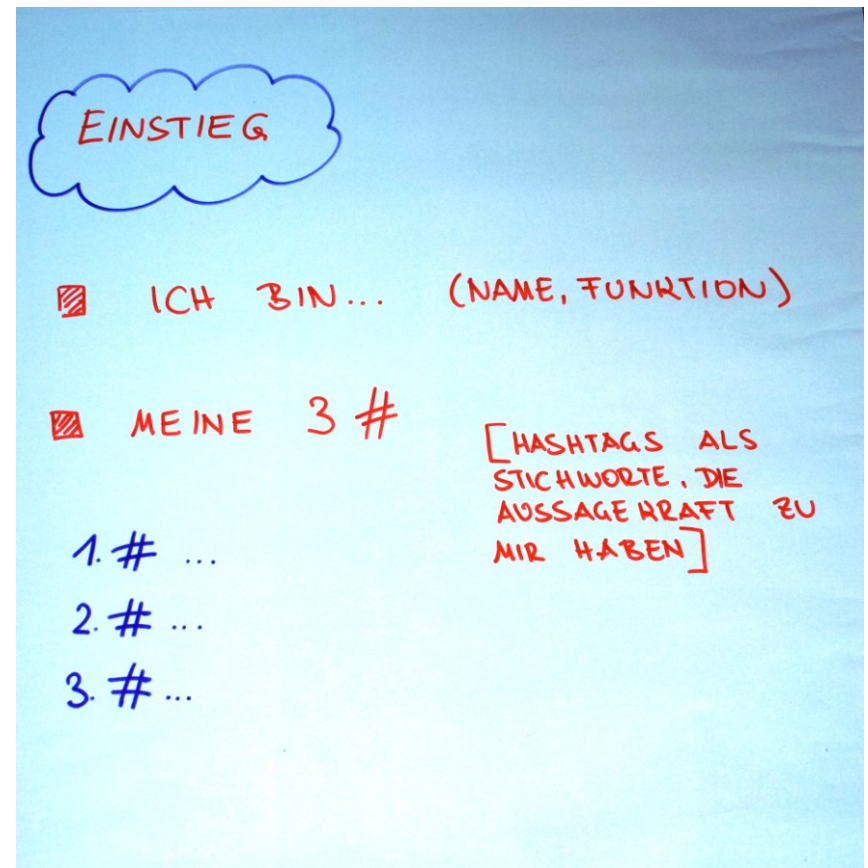 EINSTIEG
ICH BIN... (NAME, FUNKTION)
MEINE 3 #
[HASHTAGS ALS
STICHWORTE, DIE
AUSSAGEKRAFT ZU
MIR HABEN]
1. # ...
2. # ...
3. # ...